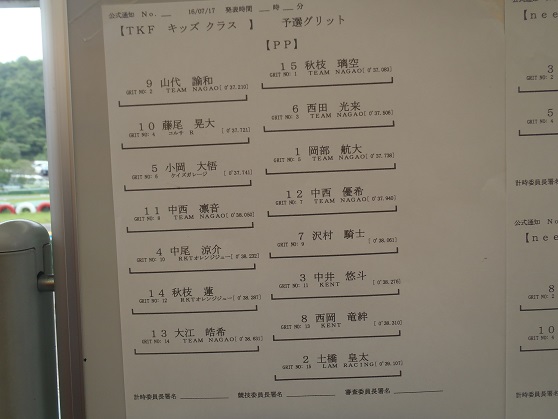 公式通知 No. __ 16/07/17 発表時間 __時__分
【TKF キッズ クラス 】 予選グリット
【PP】
15 秋枝 璃空
GRIT NO: 1 TEAM NAGAO
9 山代 諭和
GRIT NO: 2 TEAM NAGAO
6 西田 光来
GRIT NO: 3 TEAM NAGAO
10 藤尾 晃大
GRIT NO: 4
1 岡部 航大
GRIT NO: 5 TEAM NAGAO
5 小岡 大悟
GRIT NO: 6 ケイズガレージ [0'37.741]
12 中西 優希
GRIT NO: 7 TEAM NAGAO
11 中西 凛音
GRIT NO: 8 TEAM NAGAO
7 沢村 騎士
GRIT NO: 9
4 中尾 涼介
GRIT NO: 10 RKTオレンジジュー [0'38.232]
3 中井 悠斗
GRIT NO: 11 KENT [0'38.276]
14 秋枝 蓮
GRIT NO: 12 RKTオレンジジュー
8 西岡 竜絆
GRIT NO: 13 KENT [0'38.310]
13 大江 皓希
GRIT NO: 14 TEAM NAGAO
2 土橋 皇太
LAM RACING
計時委員長署名 競技委員長署名 審査委員長署名
公式通知
【nee
3
5
計時委員長署名
公式通知 No
【nee
8
10
計時委員長署名